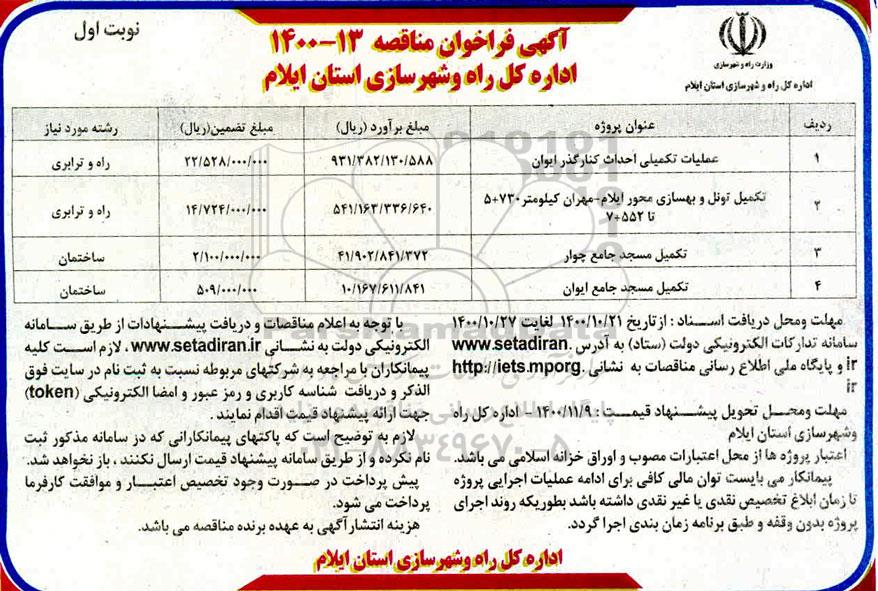 نوبت اول
آگهی فراخوان مناقصه ۱۳-۱۴۰۰
اداره کل راه وشهرسازی استان ایلام
وزارت راه و شهرسازی
اداره کل راه و شهرسازی استان ایلام
ردیف عنوان پروژه مبلغ برآورد (ریال) مبلغ تضمین(ریال) رشته مورد نیاز
۱ عملیات تکمیلی احداث کنارگذر ایوان ۹۳۱/۳۸۲/۱۳۰/۵۸۸ ۲۲/۵۲۸/۰۰۰/۰۰۰ راه و ترابری
۲ تکمیل تونل و بهسازی محور ایلام-مهران کیلومتر۷۳۰+۵
تا ۵۵۲+۷ ۵۴۱/۱۶۳/۳۳۶/۶۴۰ ۱۴/۷۲۴/۰۰۰/۰۰۰ راه و ترابری
۳ تکمیل مسجد جامع چوار ۴۱/۹۰۲/۸۴۱/۳۷۲ ۲/۱۰۰/۰۰۰/۰۰۰ ساختمان
۴ تکمیل مسجد جامع ایوان ۱۰/۱۶۷/۶۱۱/۸۴۱ ۵۰۹/۰۰۰/۰۰۰ ساختمان
مهلت ومحل دریافت اسناد : از تاریخ ۱۴۰۰/۱۰/۲۱ لغایت ۱۴۰۰/۱۰/۲۷
سامانه تدارکات الکترونیکی دولت (ستاد) به آدرس www.setadiran.
ir و پایگاه ملی اطلاع رسانی مناقصات به نشانی http://iets.mporg.
ir
مهلت ومحل تحویل پیشنهاد قیمت : ۱۴۰۰/۱۱/۹ - اداره کل راه
وشهرسازی استان ایلام
اعتبار پروژه ها از محل اعتبارات مصوب و اوراق خزانه اسلامی می باشد.
پیمانکار می بایست توان مالی کافی برای ادامه عملیات اجرایی پروژه
تا زمان ابلاغ تخصیص نقدی یا غیر نقدی داشته باشد بطوریکه روند اجرای
پروژه بدون وقفه و طبق برنامه زمان بندی اجرا گردد.
با توجه به اعلام مناقصات و دریافت پیشنهادات از طریق سامانه
الکترونیکی دولت به نشانی www.setadiran.ir ، لازم است کلیه
پیمانکاران با مراجعه به شرکتهای مربوطه نسبت به ثبت نام در سایت فوق
الذکر و دریافت شناسه کاربری و رمز عبور و امضا الکترونیکی (token)
جهت ارائه پیشنهاد قیمت اقدام نمایند .
لازم به توضیح است که پاکتهای پیمانکارانی که در سامانه مذکور ثبت
نام نکرده و از طریق سامانه پیشنهاد قیمت ارسال نکنند ، باز نخواهد شد.
پیش پرداخت در صورت وجود تخصیص اعتبار و موافقت کارفرما
پرداخت می شود.
هزینه انتشار آگهی به عهده برنده مناقصه می باشد.
اداره کل راه وشهرسازی استان ایلام